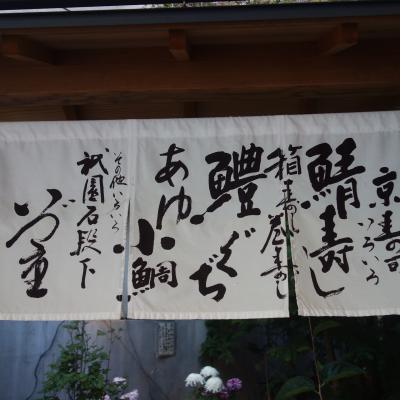 京寿司いろいろ
鯖寿し
箱寿し
巻寿し
鱧ぐぢ
あゆ
小鯛
その他いろいろ
祇園石段下
いづ重